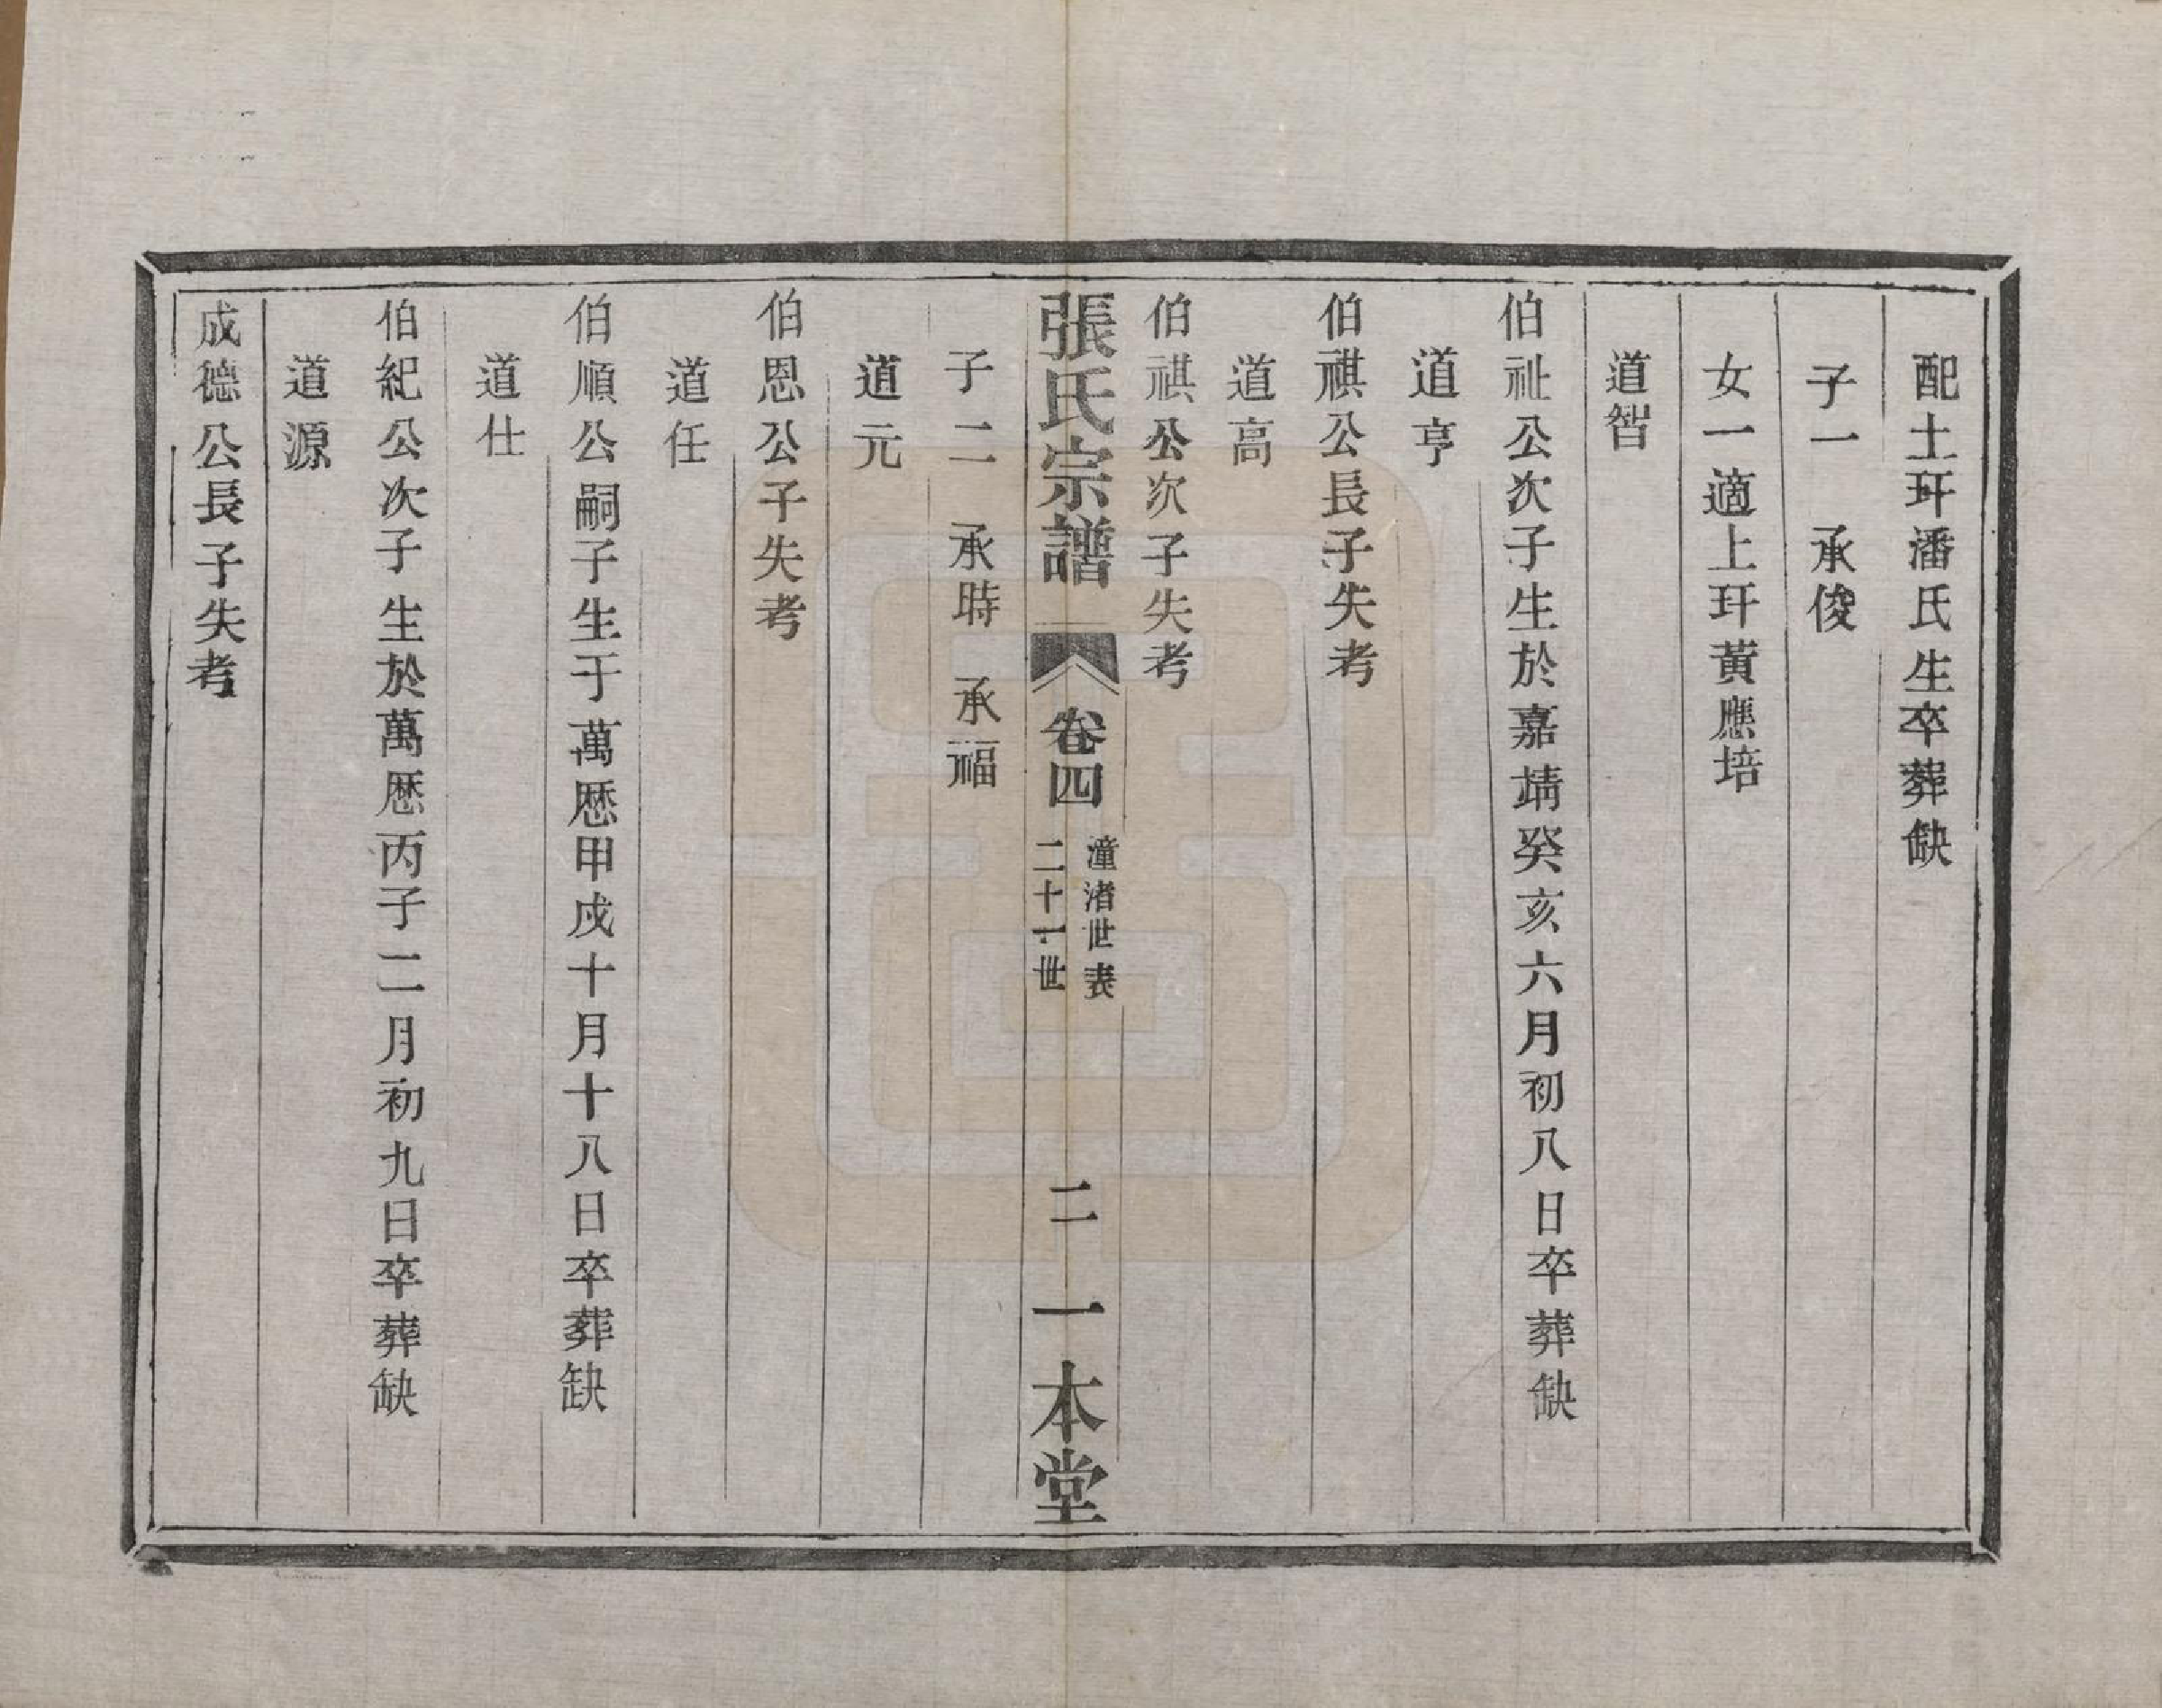 配土玕潘氏生卒葬缺
子一　承俊
女一適上玕黃應培
道智
伯祉公次子生於嘉靖癸亥六月初八日卒葬缺
道亨
伯祺公長子失考
道高
伯祺公次子失考
張氏宗譜
卷四
潼渚世表
二十一世
二
一本堂
子二　承時　承福
道元
伯恩公子失考
道任
伯順公嗣子生于萬厯甲戍十月十八日卒葬缺
道仕
伯紀公次子生於萬厯丙子二月初九日卒葬缺
道源
成德公長子失考